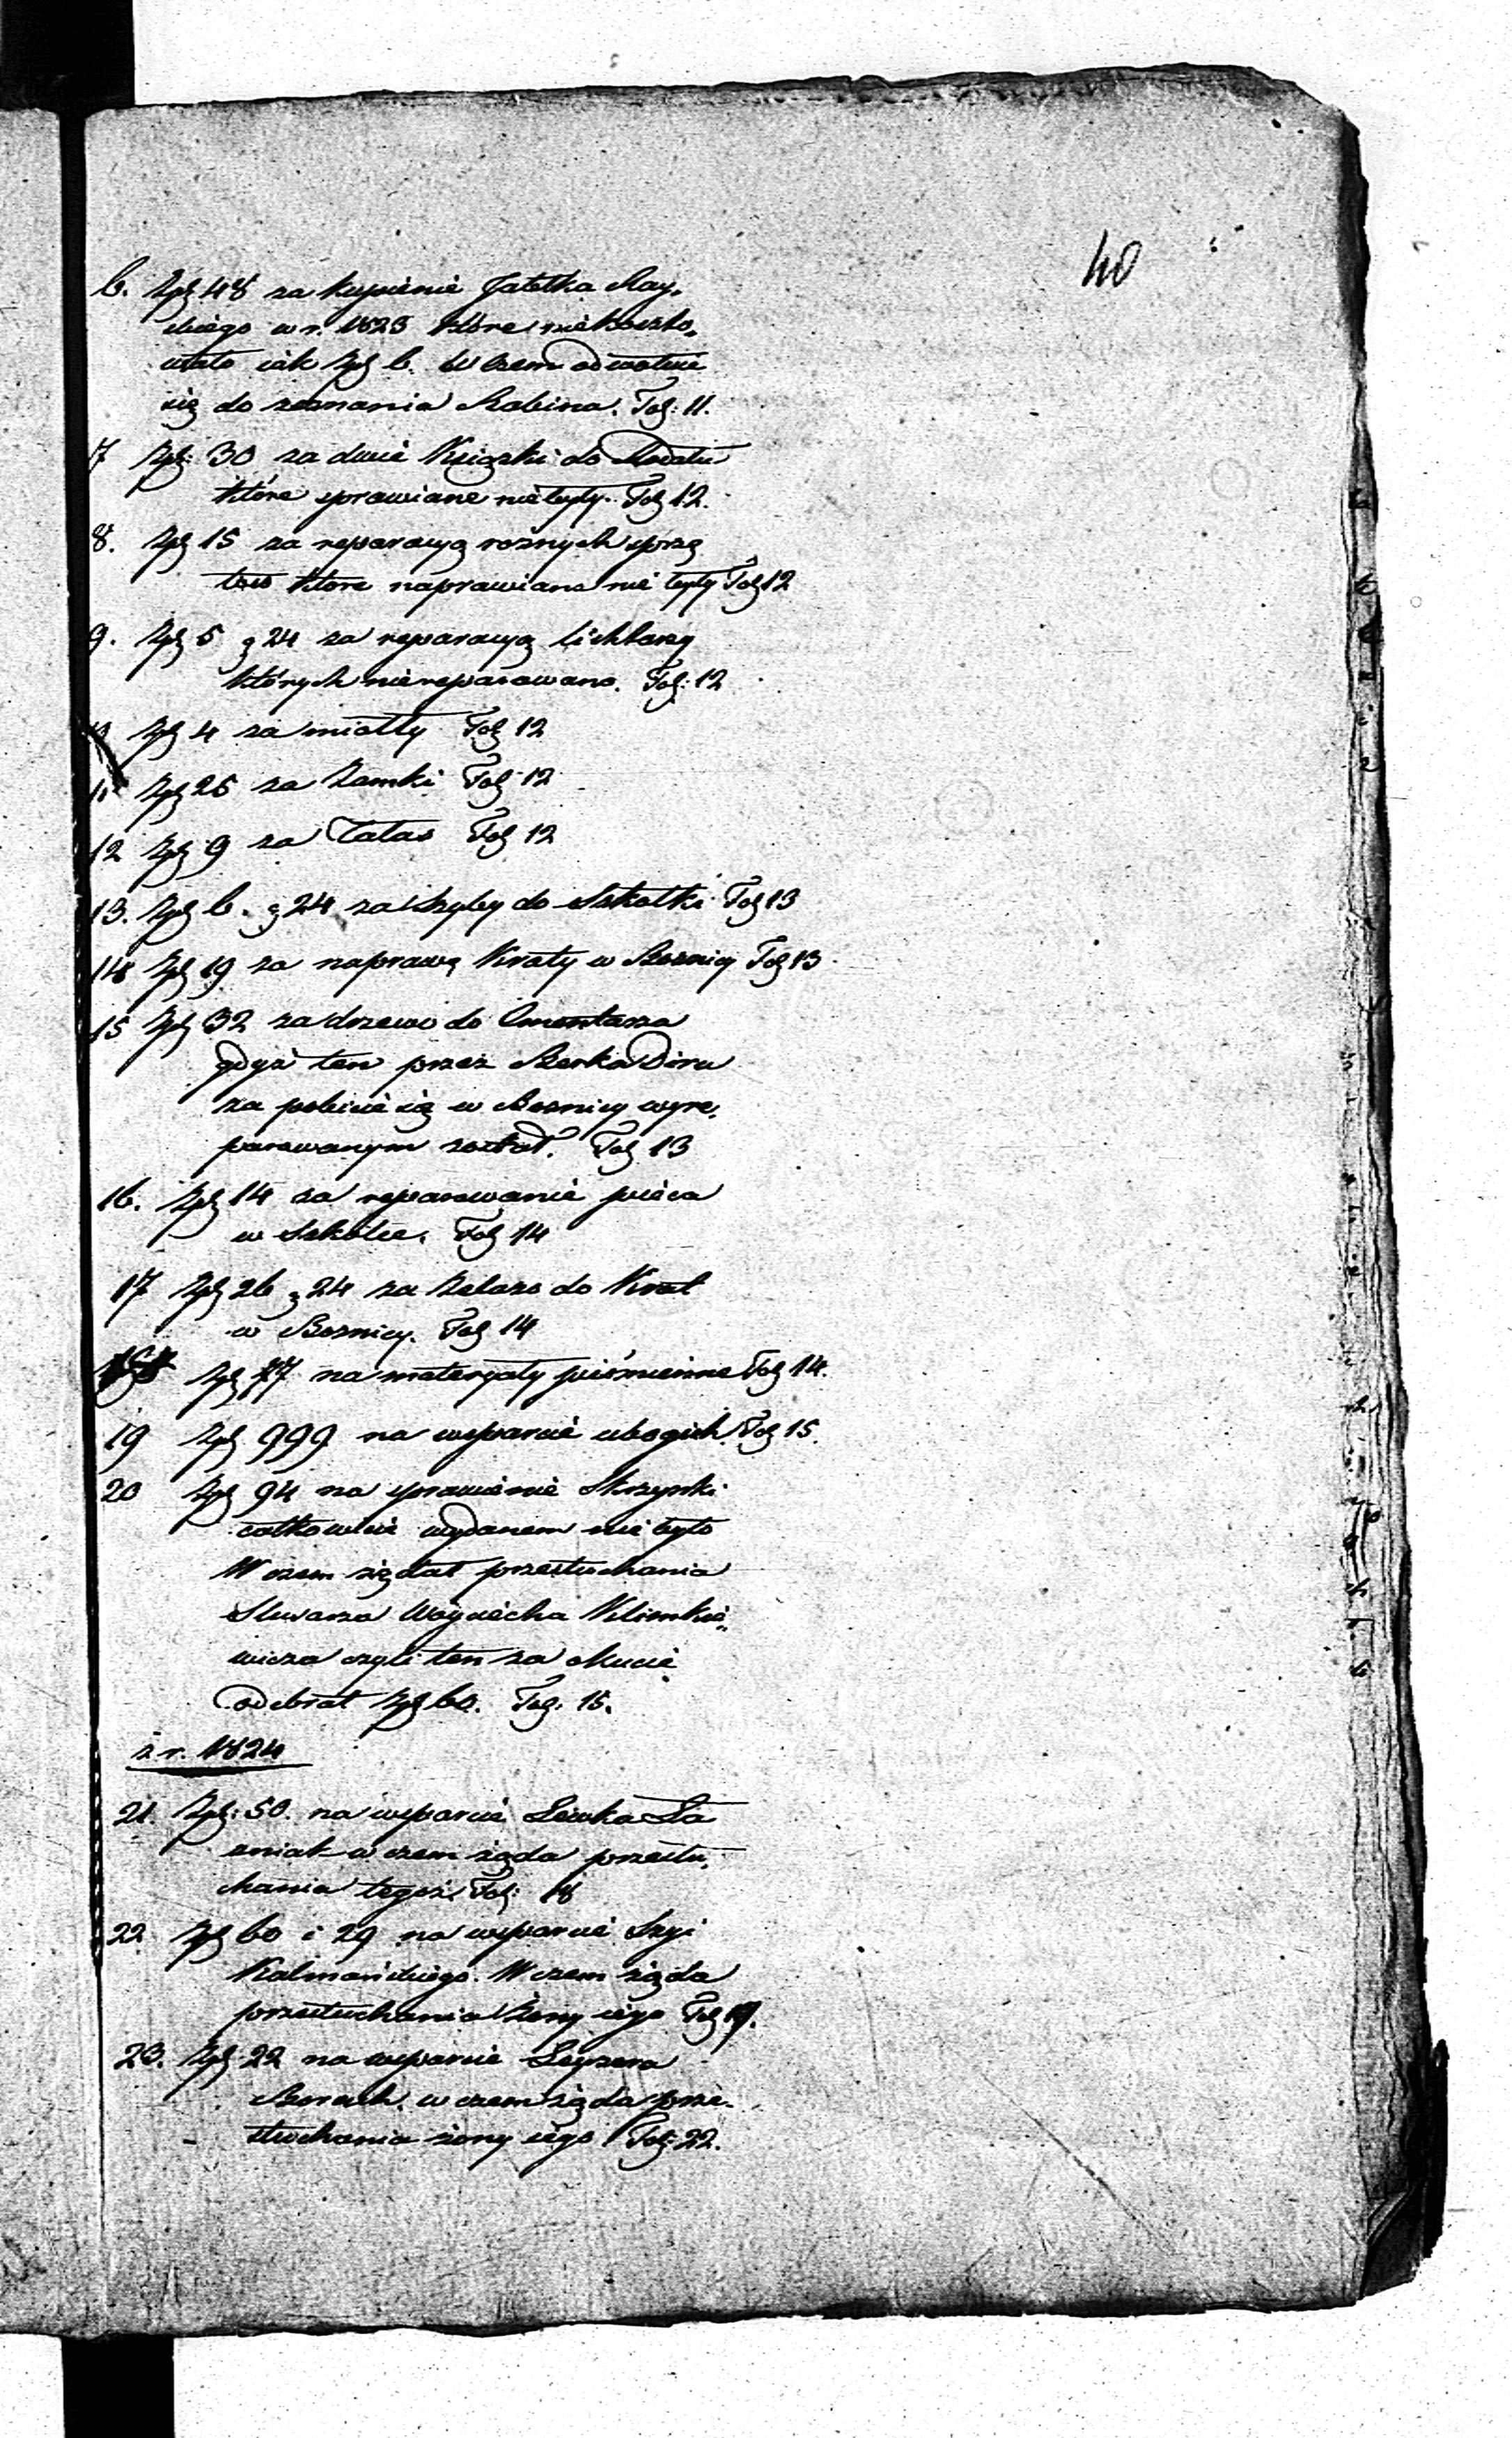 40
6. Zpł 48 za kupienie Jatelka May,
skiego w r. 1823 które niekoszto,
wało iak Zpł 6. W czem odwołuie
się do zeznania Rabina. Fol: 11.
7 Zpł: 30 za dwie Książki do
które sprawiane nie były. Fol 12.
8. Zpł 15 za reparacyą rożnych sprzę
tow które naprawiane nie były Fol 12
9. Zpł 5 g 24 za reparacyą lichtarzy
których niereparowano. Fol: 12
Zpł 4 za miotły Fol 12
11 Zpł 25 za Zamki Fol 12
12 Zpł 9 za Fol 12
13. Zpł 6. g 24 za Szyby do Szkołki Fol 13
14 Zpł 19 za naprawę Kraty w Boznicy Fol 13
15 Zpł 32 za drzewo do Cmentarza
gdyż ten przez Berka
za pobicie się w Boznicy wyre,
parowanym został. Fol 13
16. Zpł 14 za reparowanie pieca
w Szkolce. Fol 14
17 Zpł 26 g 24 za Zelazo do Krat
w Boznicy. Fol 14
18 Zpł 77 na materyały piśmienne Fol 14.
19 Zpł 999 na wsparcie ubogich. Fol 15.
20 Zpł 94 na sprawienie Skrzynki
całkowicie wydanem nie było
W czem żąda przesłuchania
Slusarza Woyciecha Klimkie,,
wicza czyli ten za okucie
odebrał Zpł 60. Fol: 15.
z r. 1824
21. Zpł: 50. na wsparcie Lewka Ła
zniak w czem żąda przesłu,
chania tegoż. Fol: 18
22. Zpł 60 i 29 na wsparcie Szyi
Kalmańskiego. W czem żąda
przesłuchania Żony iego Fol 19.
23. Zpł: 22 na wsparcie Leyzera
Boruch. w czem żąda prze-
słuchania żony iego Fol: 22.